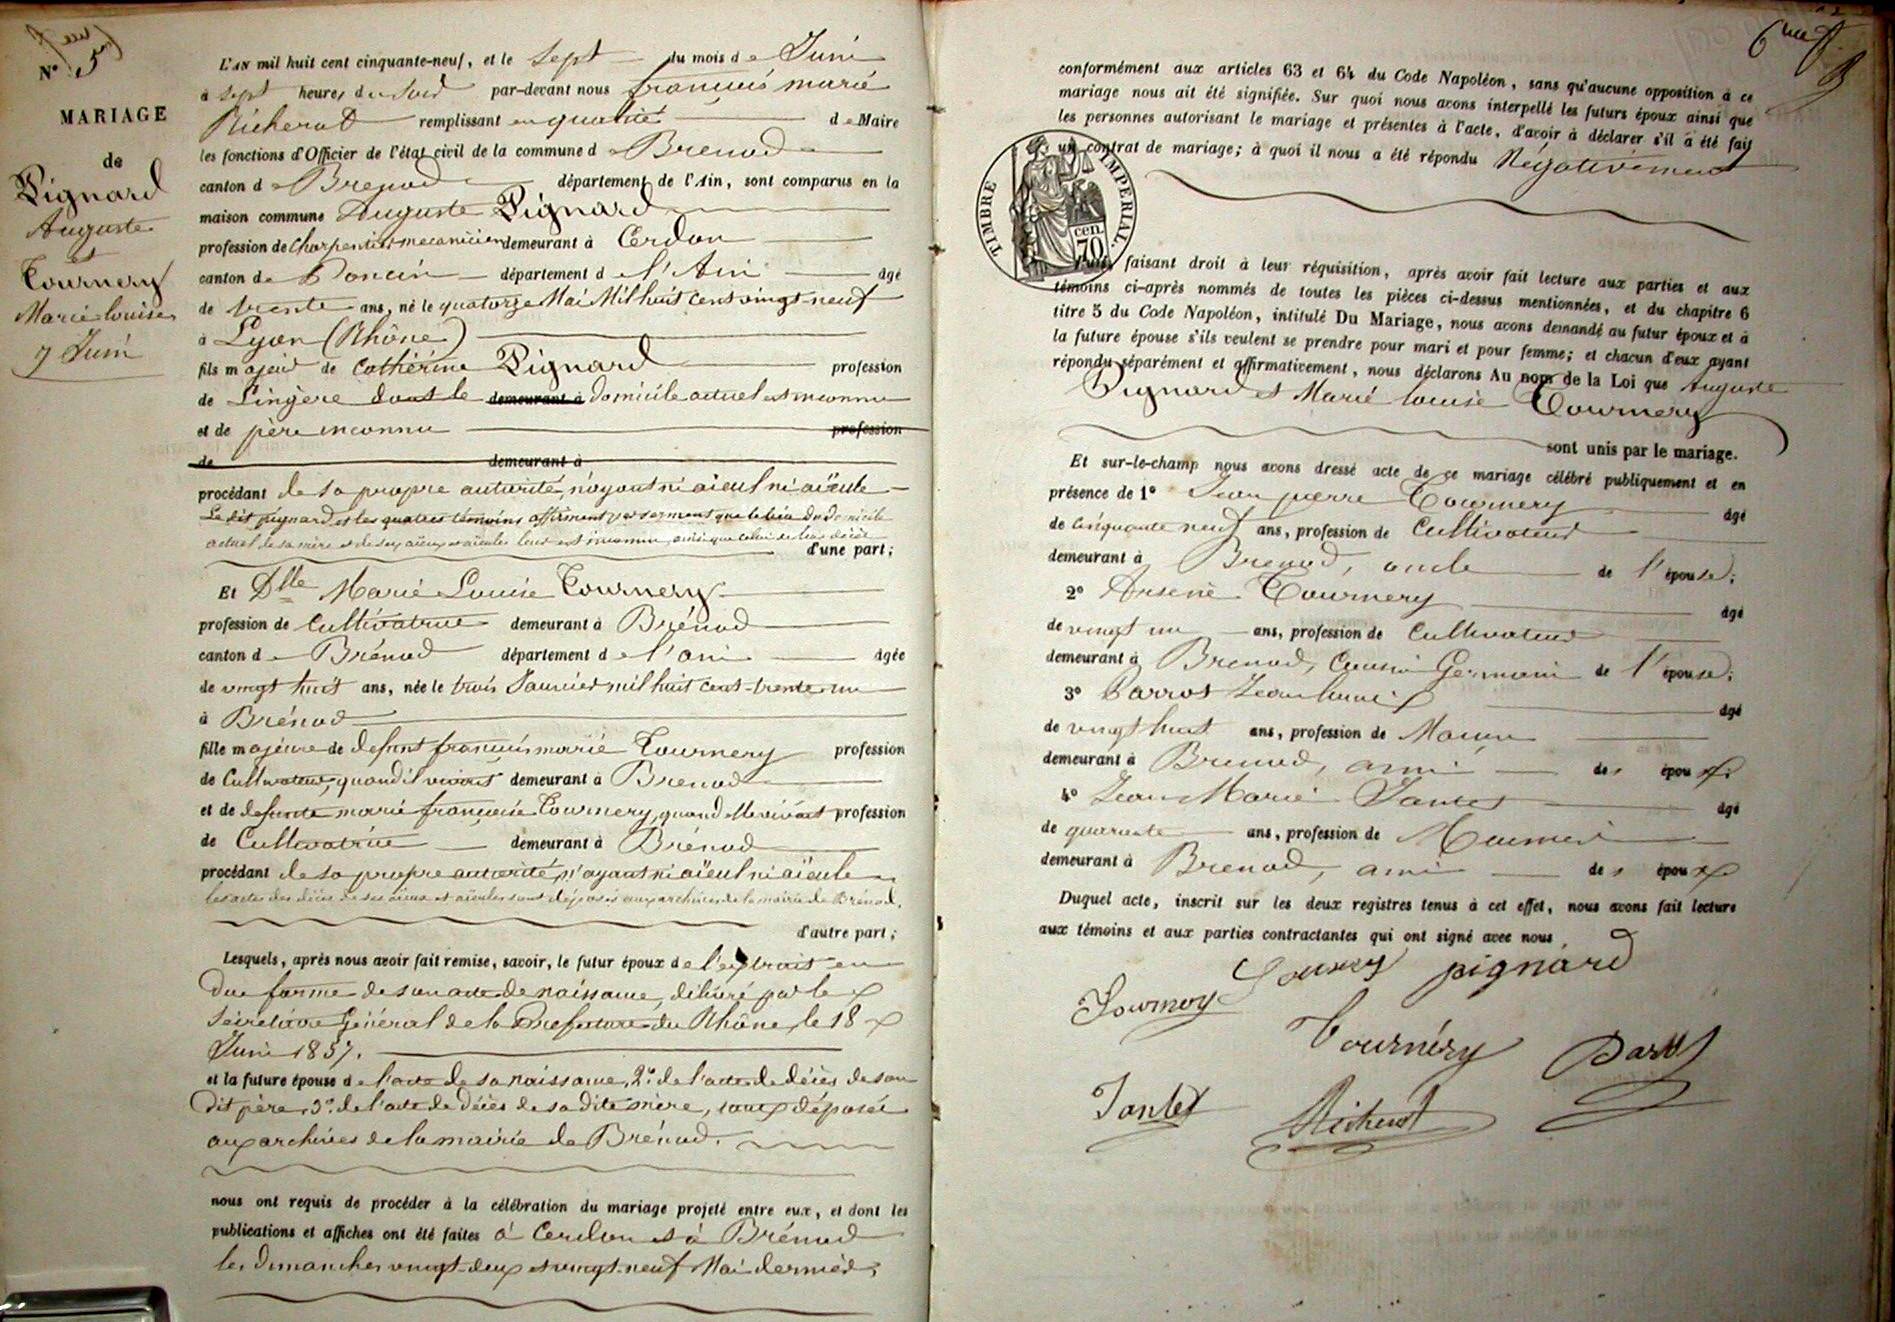 N° 5
MARIAGE
de
Pignard
Auguste
et
Tournery
Marie louise
7 Juin
L'AN mil huit cent cinquante-neuf, et le Sept du mois de Juin
à sept heures du Soir par-devant nous françois marie
Richerot remplissant en qualité de Maire
les fonctions d'Officier de l'état civil de la commune d Brenod
canton d Brenod département de l'Ain, sont comparus en la
maison commune Auguste Pignard
profession de Charpentier mecanicien demeurant à Cerdon
canton de Poncin département d l'Ain âgé
de trente ans, né le quatorze Mai Mil huit cent vingt neuf
à Lyon (Rhône)
fils majeur de Cathérine Pignard profession
de Lingère dont le demeurant à domicile actuel est inconnu
et de père inconnu profession
de demeurant à
procédant de sa propre autorité, n'ayant ni aïeul ni aïeule
Le dit pignard et les quatres témoins affirment par serment que le lieu du domicile
actuel de sa mère et de ses aïeux et aïeules leur est inconnu, ainsi que celui de leur décès
d'une part;
Et Dlle Marie Louise Tournery
profession de Cultivatrice demeurant à Brénod
canton d Brénod département d l'ain âgée
de vingt huit ans, née le trois Janvier mil huit cent trente un
à Brénod
fille majeure de defunt françois marie Tournery profession
de Cultivateur, quand il vivait demeurant à Brenod
et de defunte marie françoise Tournery, quand elle vivait profession
de Cultivatrice demeurant à Brénod
procédant de sa propre autorité, n'ayant ni aïeul ni aïeule
les actes des décès de ses aïeux et aïeules sont déposés aux archives de la mairie de Brénod.
d'autre part;
Lesquels, après nous avoir fait remise, savoir, le futur époux de l'extrait en
due forme de son acte de naissance, délivré par le
Sécrétaire Général de la Prefecture du Rhône, le 18
Juin 1857.
et la future épouse de l'acte de sa naissance, 2° de l'acte de décès de son
dit père, 3° de l'acte de décès de sa dite mère, tous déposés
aux archives de la mairie de Brénod.
nous ont requis de procéder à la célébration du mariage projeté entre eux, et dont les
publications et affiches ont été faites à Cerdon et à Brénod
les dimanches vingt-deux et vingt-neuf Mai dernier,
conformément aux articles 63 et 64 du Code Napoléon, sans qu'aucune opposition à ce
mariage nous ait été signifiée. Sur quoi nous avons interpellé les futurs époux ainsi que
les personnes autorisant le mariage et présentes à l'acte, d'avoir à déclarer s'il a été fait
un contrat de mariage; à quoi il nous a été répondu Négativement
TIMBRE IMPERIAL.
70 cen.
faisant droit à leur réquisition, après avoir fait lecture aux parties et aux
témoins ci-après nommés de toutes les pièces ci-dessus mentionnées, et du chapitre 6
titre 5 du Code Napoléon, intitulé Du Mariage, nous avons demandé au futur époux et à
la future épouse s'ils veulent se prendre pour mari et pour femme; et chacun d'eux ayant
répondu séparément et affirmativement, nous déclarons Au nom de la Loi que Auguste
Pignard et Marie louise Tournery
sont unis par le mariage.
Et sur-le-champ nous avons dressé acte de ce mariage célébré publiquement et en
présence de 1° Jean pierre Tournery âgé
de cinquante neuf ans, profession de Cultivateur
demeurant à Brenod, oncle de l'épouse;
2° Arsene Tournery âgé
de vingt un ans, profession de Cultivateur
demeurant à Brenod, Cousin Germain de l'épouse;
3° Barros Jean louis âgé
de vingt huit ans, profession de Maçon
demeurant à Brenod, ami des époux
4° Jean Marie Jantet âgé
de quarante ans, profession de
demeurant à Brenod, ami des époux
Duquel acte, inscrit sur les deux registres tenus à cet effet, nous avons fait lecture
aux témoins et aux parties contractantes qui ont signé avec nous,
pignard
Tournery
Jantet Richerot